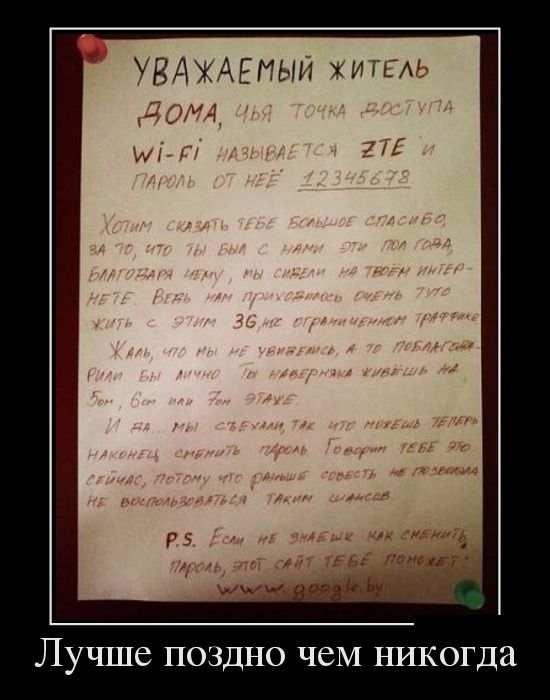 УВАЖАЕМЫЙ ЖИТЕЛЬ
ДОМА, ЧЬЯ ТОЧКА ДОСТУПА
Wi-Fi НАЗЫВАЕТСЯ ZTE И
ПАРОЛЬ ОТ НЕЁ 12345678.
ХОТИМ СКАЗАТЬ ТЕБЕ БОЛЬШОЕ СПАСИБО,
ЗА ТО, ЧТО ТЫ БЫЛ С НАМИ ЭТИ ПОЛ ГОДА,
БЛАГОДАРЯ ЧЕМУ, МЫ СИДЕЛИ НА ТВОЁМ ИНТЕР-
НЕТЕ. ВЕДЬ НАМ ПРИХОДИЛОСЬ ОЧЕНЬ ТУГО
ЖИТЬ С ЭТИМ 3G, ОГРАНИЧЕННОМ ТРАФФИКЕ
ЖАЛЬ, ЧТО МЫ НЕ УВИДЕЛИСЬ, А ТО ПОБЛАГОДА-
РИЛИ БЫ ЛИЧНО ТЫ НАВЕРНЯКА ЖИВЁШЬ НА
5ом, 6ом ИЛИ 7ом ЭТАЖЕ.
И ДА... МЫ СЪЕХАЛИ, ТАК ЧТО МОЖЕШЬ ТЕПЕРЬ
НАКОНЕЦ СМЕНИТЬ ПАРОЛЬ. ГОВОРИМ ТЕБЕ ЭТО
СЕЙЧАС, ПОТОМУ ЧТО РАНЬШЕ СОВЕСТЬ НЕ ПОЗВОЛИЛА
НЕ ВОСПОЛЬЗОВАТЬСЯ ТАКИМ ШАНСОВ.
P.S. ЕСЛИ НЕ ЗНАЕШЬ КАК СМЕНИТЬ
ПАРОЛЬ, ЭТОТ САЙТ ТЕБЕ ПОМОЖЕТ:
www.google.by
Лучше поздно чем никогда